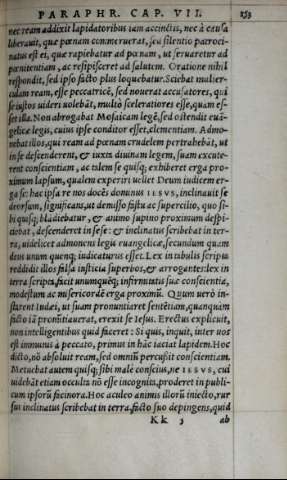 PARAPHR. CAP. VII. 253
nec ream addixit lapidatoribus iam accinctis, nec à causa
liberauit, quæ pœnam commeruerat, sed silentio patroci-
natus est ei, quæ rapiebatur ad pœnam, ut seruaretur ad
pœnitentiam, ac resipisceret ad salutem. Oratione nihil
respondit, sed ipso facto plus loquebatur. Sciebat mulier-
culam ream, esse peccatricē, sed nouerat accusatores, qui
se iustos uideri uolebāt, multò sceleratiores esse, quam es-
set illa. Non abrogabat Mosaicam legē, sed ostendit euā-
gelicæ legis, cuius ipse conditor esset, clementiam. Admo-
nebat illos, qui ream ad pœnam crudelem pertrahebāt, ut
in se descenderent, & iuxta diuinam legem, suam excute-
rent conscientiam, ac talem se quisq; exhiberet erga pro-
ximum lapsum, qualem experiri uellet Deum iudicem er-
ga se: hac ipsa re nos docēs dominus IESVS, inclinauit se
deorsum, significans, ut demisso fastu ac supercilio, quo si-
bi quisq; blādiebatur, & animo supino proximum despi-
ciebat, descenderet in sese: & inclinatus scribebat in ter-
ra, uidelicet admonens legis euangelicæ, secundum quam
deus unum quenq; iudicaturus esset. Lex in tabulis scripta
reddidit illos falsa iusticia superbos, & arrogantes: lex in
terra scripta, facit unumquēq; infirmitatis suæ conscientia,
modestum ac misericordē erga proximū. Quum uerò in-
starent Iudæi, ut suam pronuntiaret sententiam, quanquam
facto iā pronūtiauerat, erexit se Iesus. Erectus explicuit,
non intelligentibus quid faceret: Si quis, inquit, inter uos
est innunis à peccato, primus in hāc iaciat lapidem. Hoc
dicto, nō absoluit ream, sed omniū percussit conscientiam.
Metuebat autem quisq; sibi malè conscius, ne IESVS, cui
uidebāt etiam occulta nō esse incognita, proderet in publi-
cum ipsorū facinora. Hoc aculeo animis illorū iniecto, rur
sus inclinatus scribebat in terra, facto suo depingens, quid
Kk 3 ab